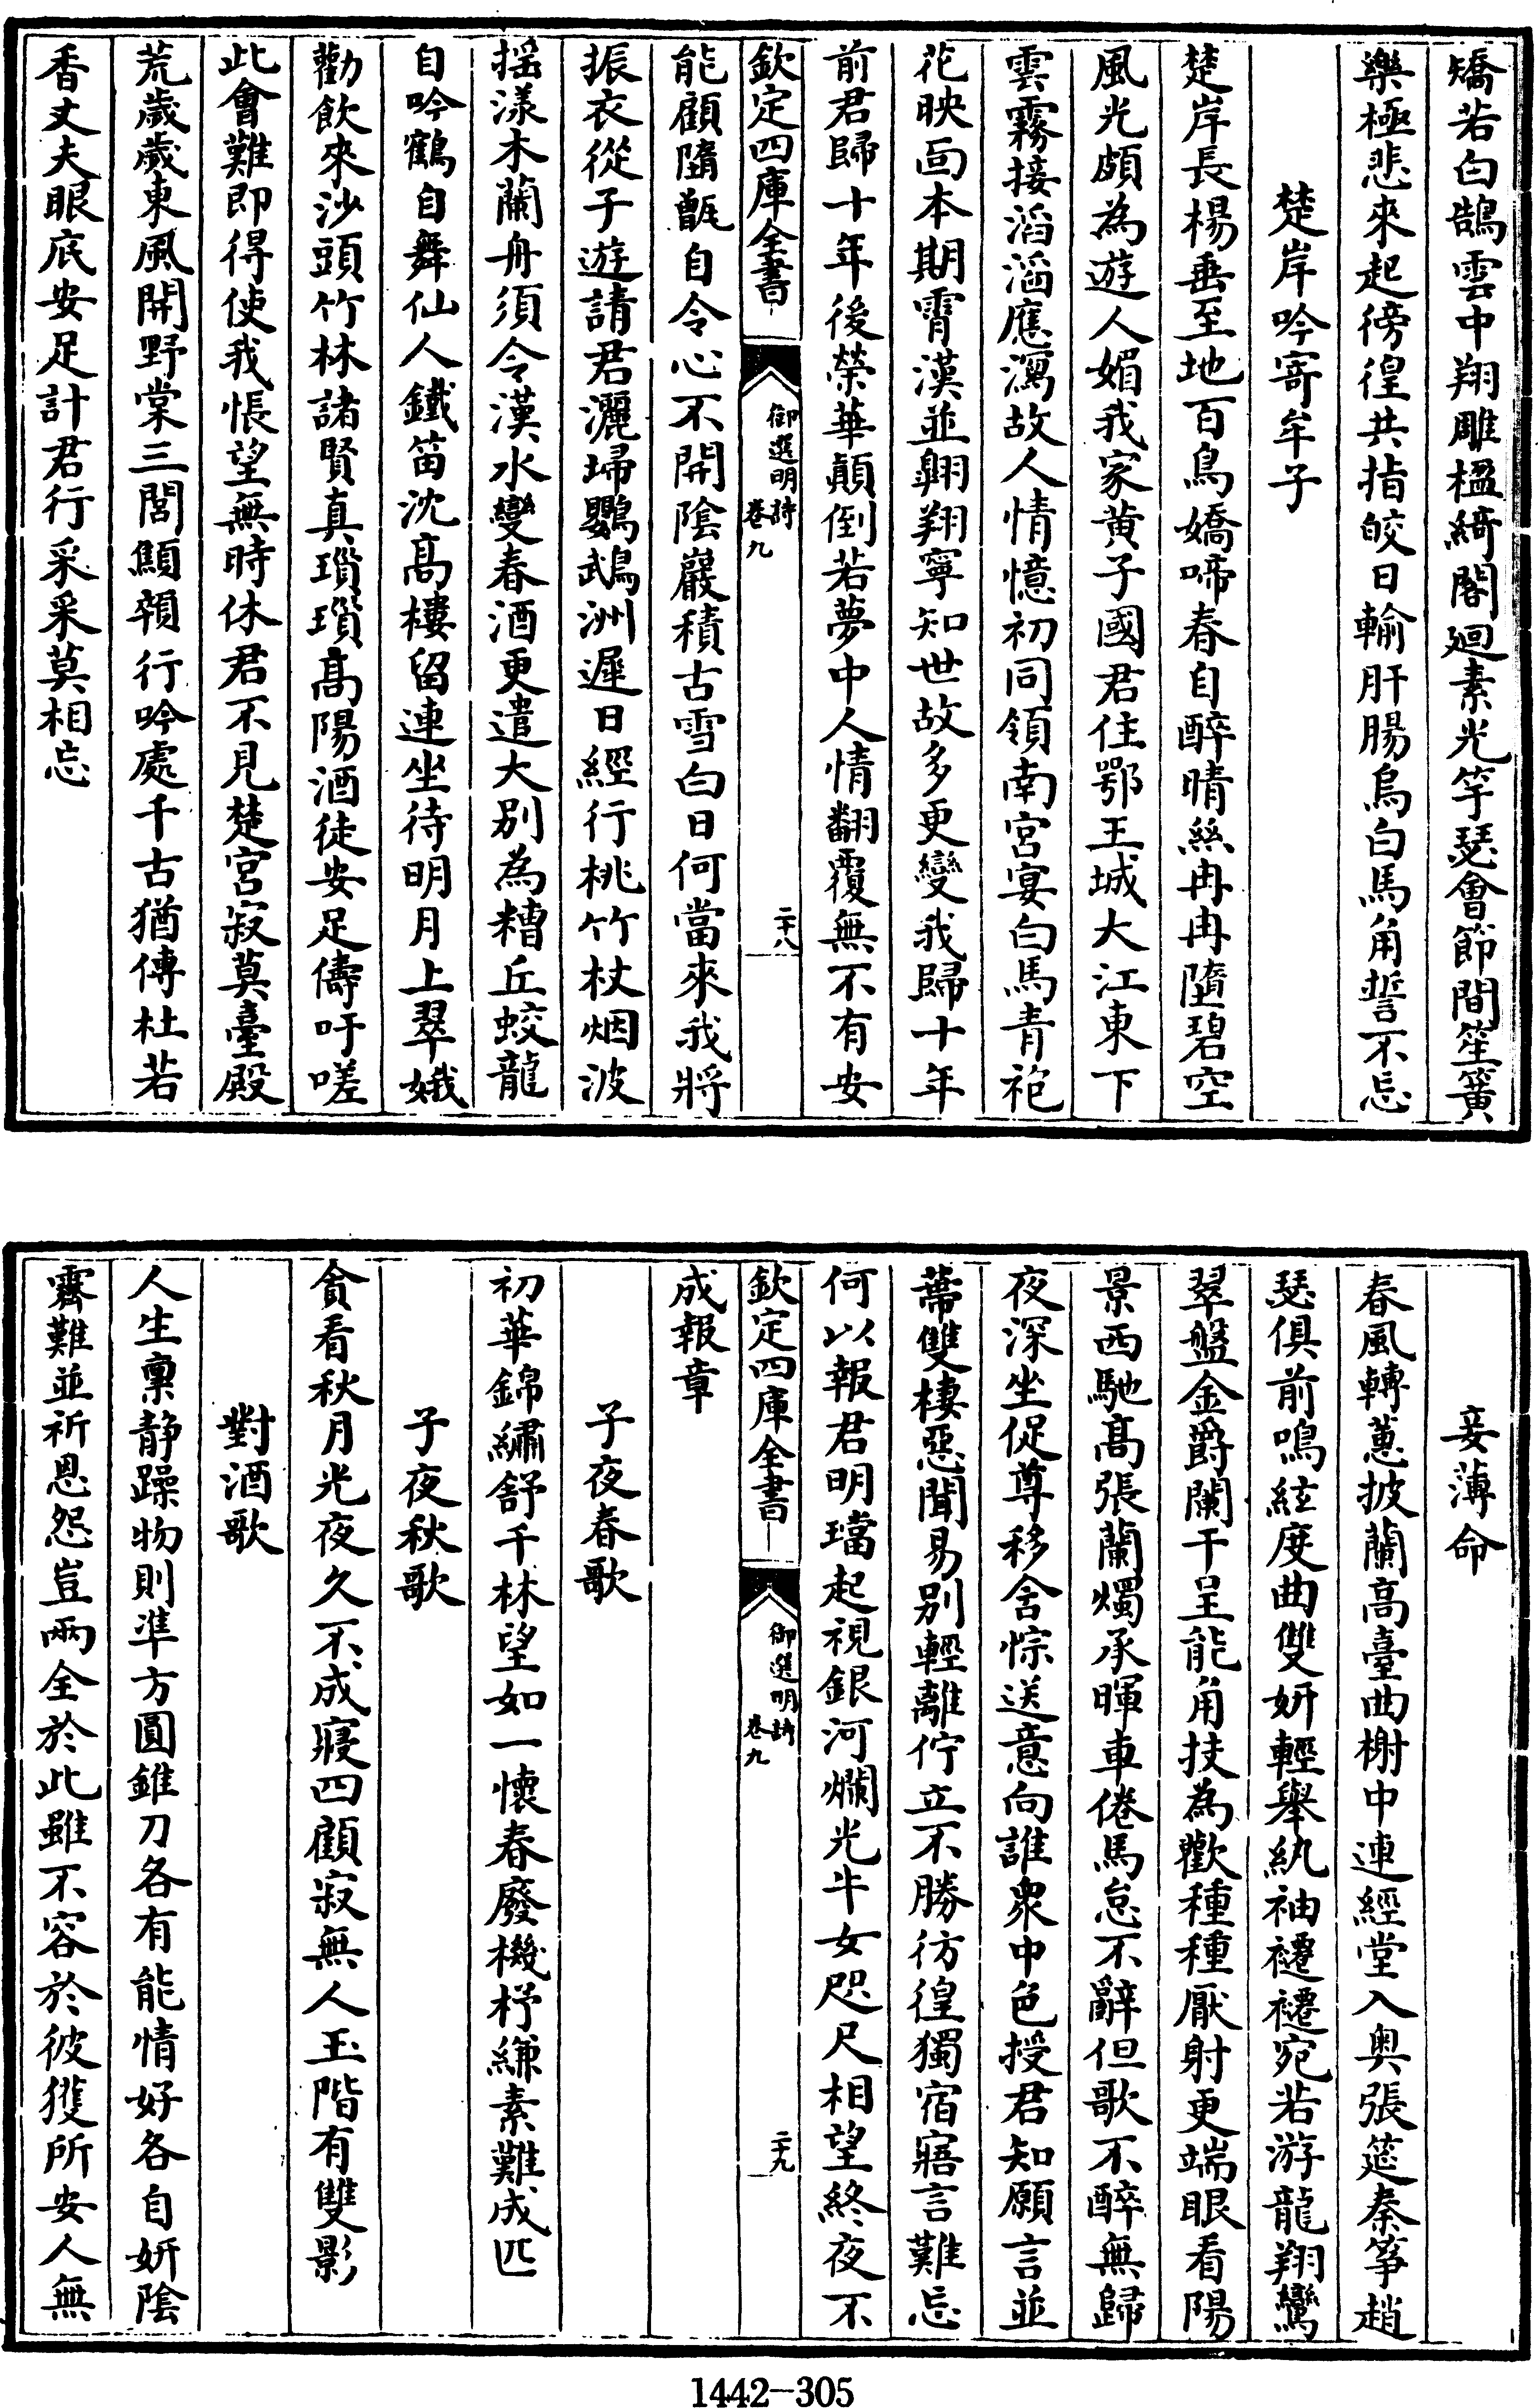 矯若白鵠雲中翔雕楹綺閣廻素光竽瑟會節間笙簧
樂極悲來起徬徨共指皎日輸肝腸烏白馬角誓不忘
楚岸吟寄牟子
楚岸長楊垂至地百鳥嬌啼春自醉晴絲冉冉墮碧空
風光頗為遊人媚我家黄子國君住鄂王城大江東下
雲霧接滔滔應瀉故人情憶初同領南宮宴白馬青袍
花映面本期霄漢並翺翔寧知世故多更變我歸十年
前君歸十年後榮華顛倒若夢中人情翻覆無不有安
欽定四庫全書
御選明詩
卷九
二十八
能顧隋甑自令心不開陰巖積古雪白日何當來我將
振衣從子遊請君灑埽鸚鵡洲遲日經行桃竹杖烟波
揺漾木蘭舟須令漢水變春酒更遣大别為糟丘蛟龍
自吟鶴自舞仙人鐵笛沈髙樓留連坐待明月上翠娥
勸飲來沙頭竹林諸賢真瑣瑣髙陽酒徒安足儔吁嗟
此會難即得使我悵望無時休君不見楚宮寂莫臺殿
荒歲歲東風開野棠三閭顦顇行吟處千古猶傳杜若
香丈夫眼底安足計君行采采莫相忘
妾薄命
春風轉蕙披蘭高臺曲榭中連經堂入奥張筵秦箏趙
瑟俱前鳴絃度曲雙妍輕舉紈袖褼褼宛若游龍翔鸞
翠盤金爵闌干呈能角技為歡種種厭射更端眼看陽
景西馳髙張蘭燭承暉車倦馬怠不辭但歌不醉無歸
夜深坐促尊移含悰送意向誰衆中色授君知願言並
蒂雙棲惡聞易别輕離佇立不勝彷徨獨宿寤言難忘
何以報君明璫起視銀河爛光牛女咫尺相望終夜不
欽定四庫全書
御選明詩
卷九
二十九
成報章
子夜春歌
初華錦繡舒千林望如一懷春廢機杼縑素難成匹
子夜秋歌
貪看秋月光夜久不成寢四顧寂無人玉階有雙影
對酒歌
人生稟静躁物則準方圓錐刀各有能情好各自妍陰
霽難並祈恩怨豈兩全於此雖不容於彼獲所安人無
1442—305